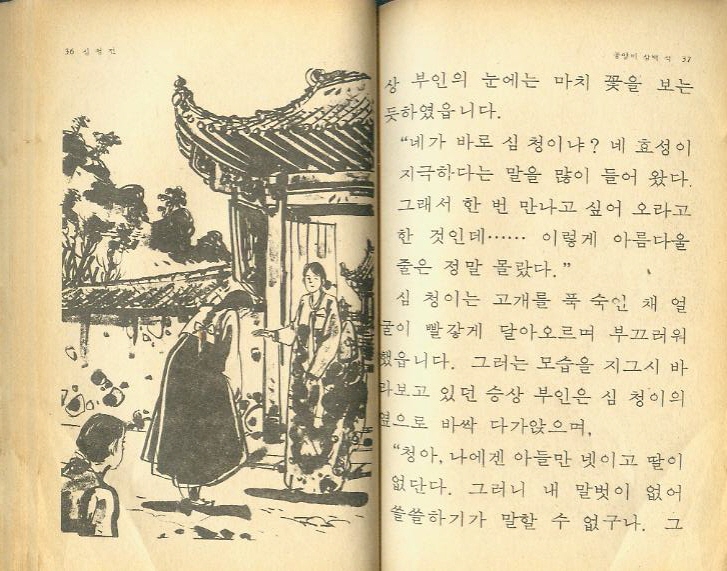 36 심청전
공양미 삼백 석 37
상 부인의 눈에는 마치 꽃을 보는
듯하였읍니다.
“네가 바로 심 청이냐? 네 효성이
지극하다는 말을 많이 들어 왔다.
그래서 한 번 만나고 싶어 오라고
한 것인데…… 이렇게 아름다울
줄은 정말 몰랐다.”
심 청이는 고개를 푹 숙인 채 얼
굴이 빨갛게 달아오르며 부끄러워
했읍니다. 그러는 모습을 지그시 바
라보고 있던 승상 부인은 심 청이의
옆으로 바싹 다가앉으며,
“청아, 나에겐 아들만 넷이고 딸이
없단다. 그러니 내 말벗이 없어
쓸쓸하기가 말할 수 없구나. 그